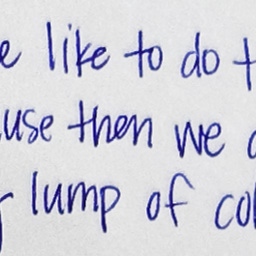 e like to do t
use then we
lump of col